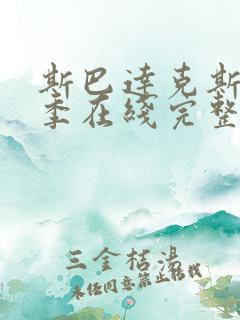 斯巴达克斯
季在线完整
三金桔汤
未经同意禁止转载